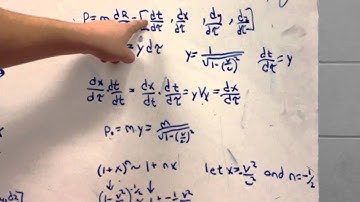 P = m dR/dτ = [dt/dτ, dx/dτ, dy/dτ, dz/dτ]
= γ dτ γ = 1/√(1-(v/c)²) dt/dτ = γ
dx/dτ dt/dt = dx/dt · dt/dτ = γVx = dx/dτ
P₀ = mγ = m/√(1-(v/c)²)
(1+x)ⁿ ~ 1 + nx let x = -v²/c² and n = -1/2
(1-v²/c²)^-1/2